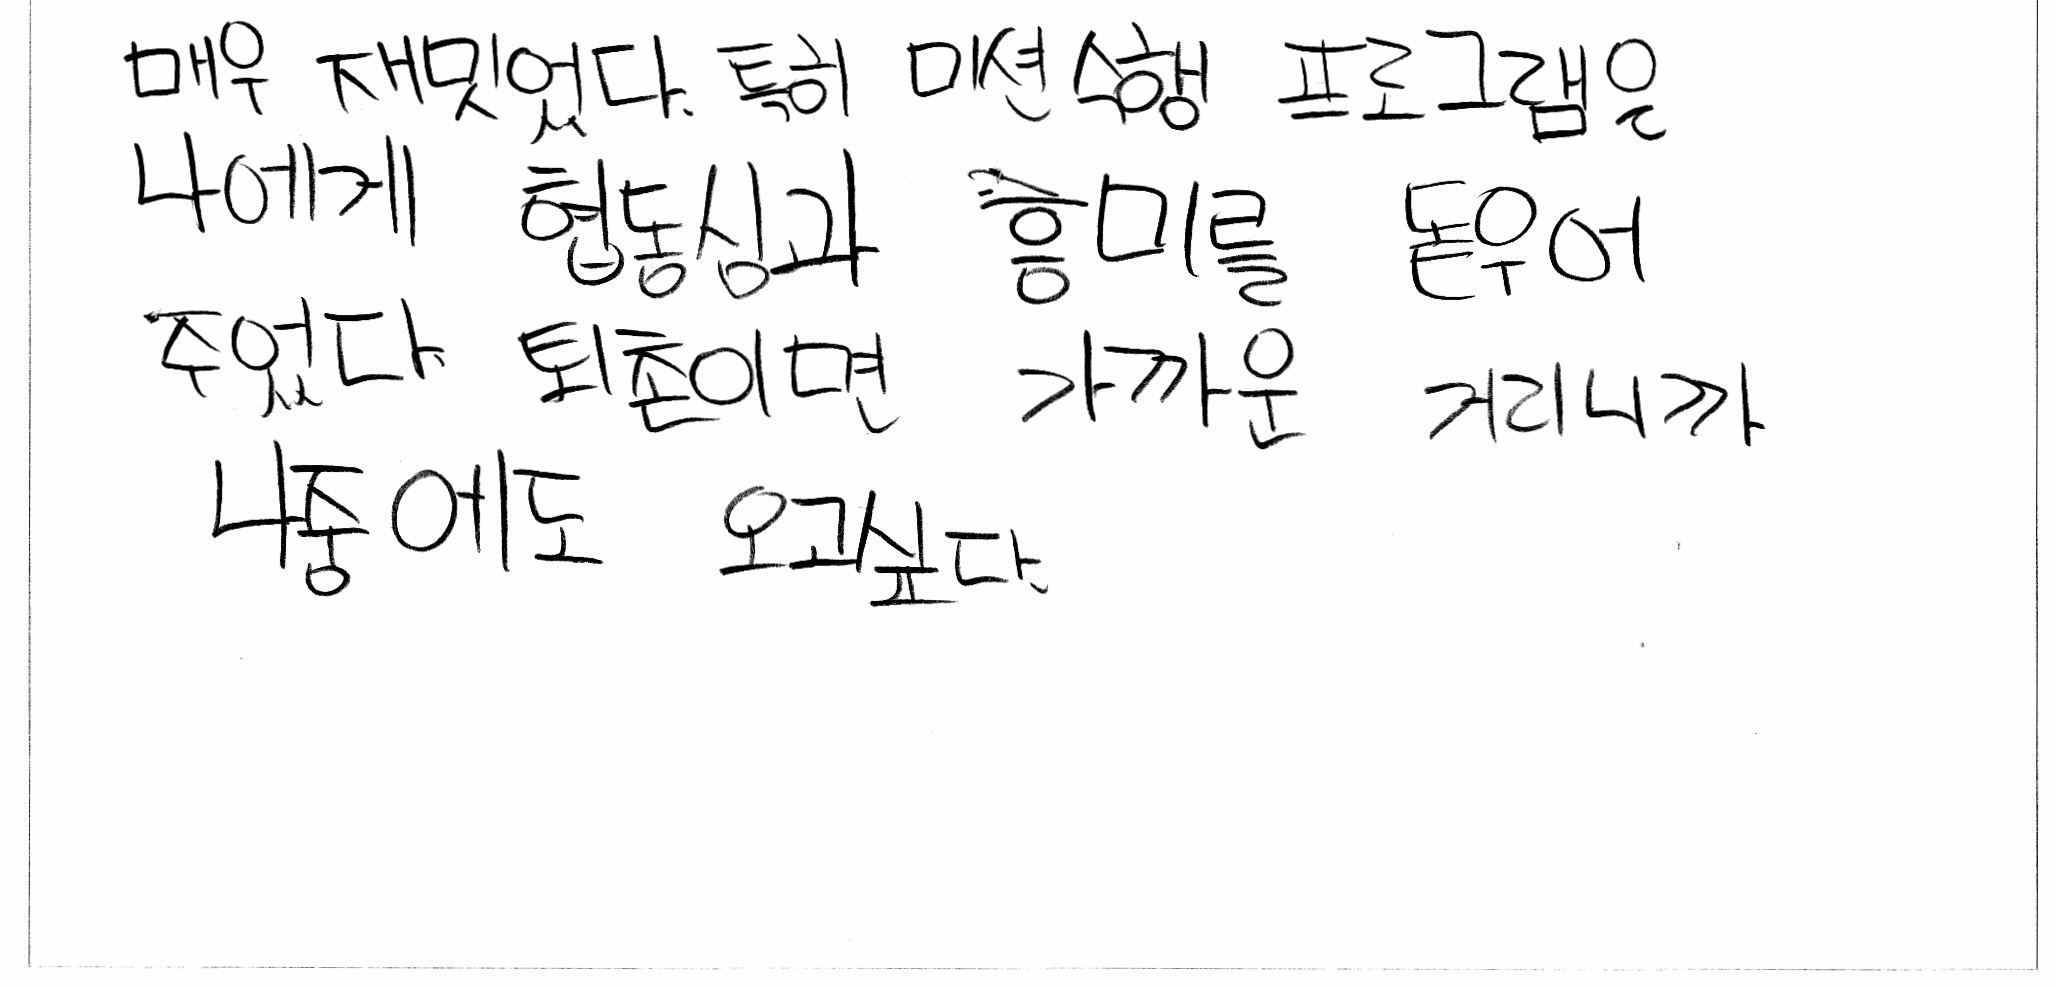 매우 재밌었다. 특히 미션수행 프로그램을
나에게 협동심과 흥미를 돋우어
주었다. 퇴촌이면 가까운 거리니까
나중에도 오고싶다.